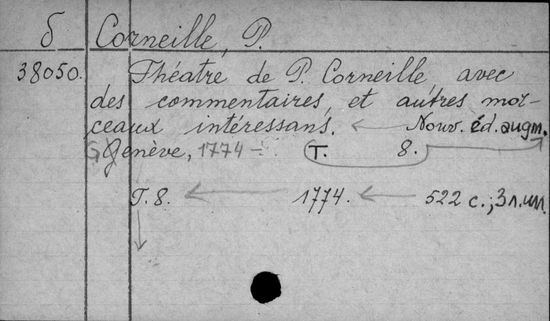 б Corneille, P.
38050. Théatre de P. Corneille, avec
des commentaires, et autres mor-
ceaux intéressans. Nouv. éd. augm.
Genève, 1774 – T. 8.
T. 8. 1774. 522 с.; 3 л. ил.